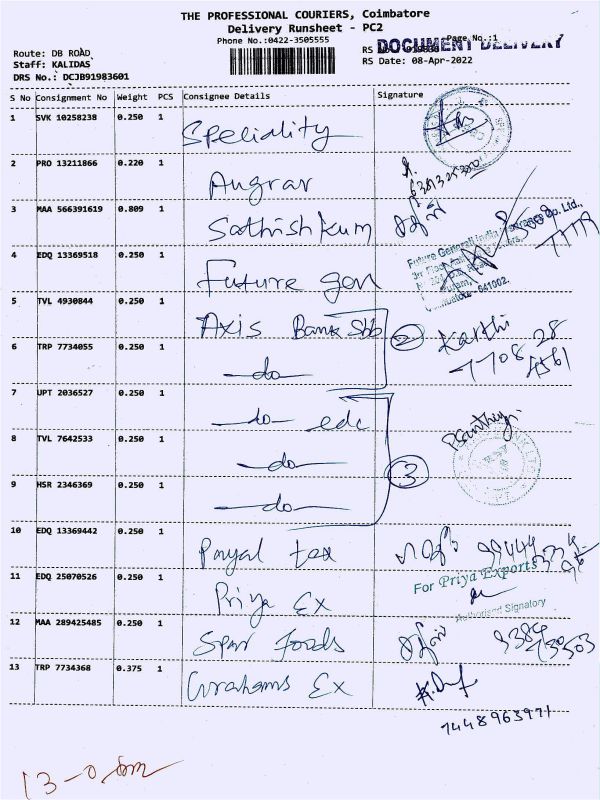 THE PROFESSIONAL COURIERS, Coimbatore
Delivery Runsheet - PC2
Phone No.:0422-3505555
Page No.:1
DOCUMENT DELIVERY
Route: DB ROAD
Staff: KALIDAS
DRS No.: DCJB91983601
RS No
RS Date: 08-Apr-2022
S No Consignment No Weight PCS Consignee Details Signature
1 SVK 10258238 0.250 1 Speciality
2 PRO 13211866 0.220 1 Angrar
3 MAA 566391619 0.809 1 Sathish kum
4 EDQ 13369518 0.250 1 Future gen
Future Generali India Insurance Co. Ltd.,
641002.
5 TVL 4930844 0.250 1 Axis Bank Sbb
2 Karthi
7708 28
4561
6 TRP 7734055 0.250 1 -do-
7 UPT 2036527 0.250 1 -do- edc
8 TVL 7642533 0.250 1 -do-
3
9 HSR 2346369 0.250 1 -do-
10 EDQ 13369442 0.250 1 Payal tex
11 EDQ 25070526 0.250 1 Priya Ex
For Priya Exports
Authorised Signatory
12 MAA 289425485 0.250 1 Spar foods
13 TRP 7734368 0.375 1 Grahams Ex
7448963971